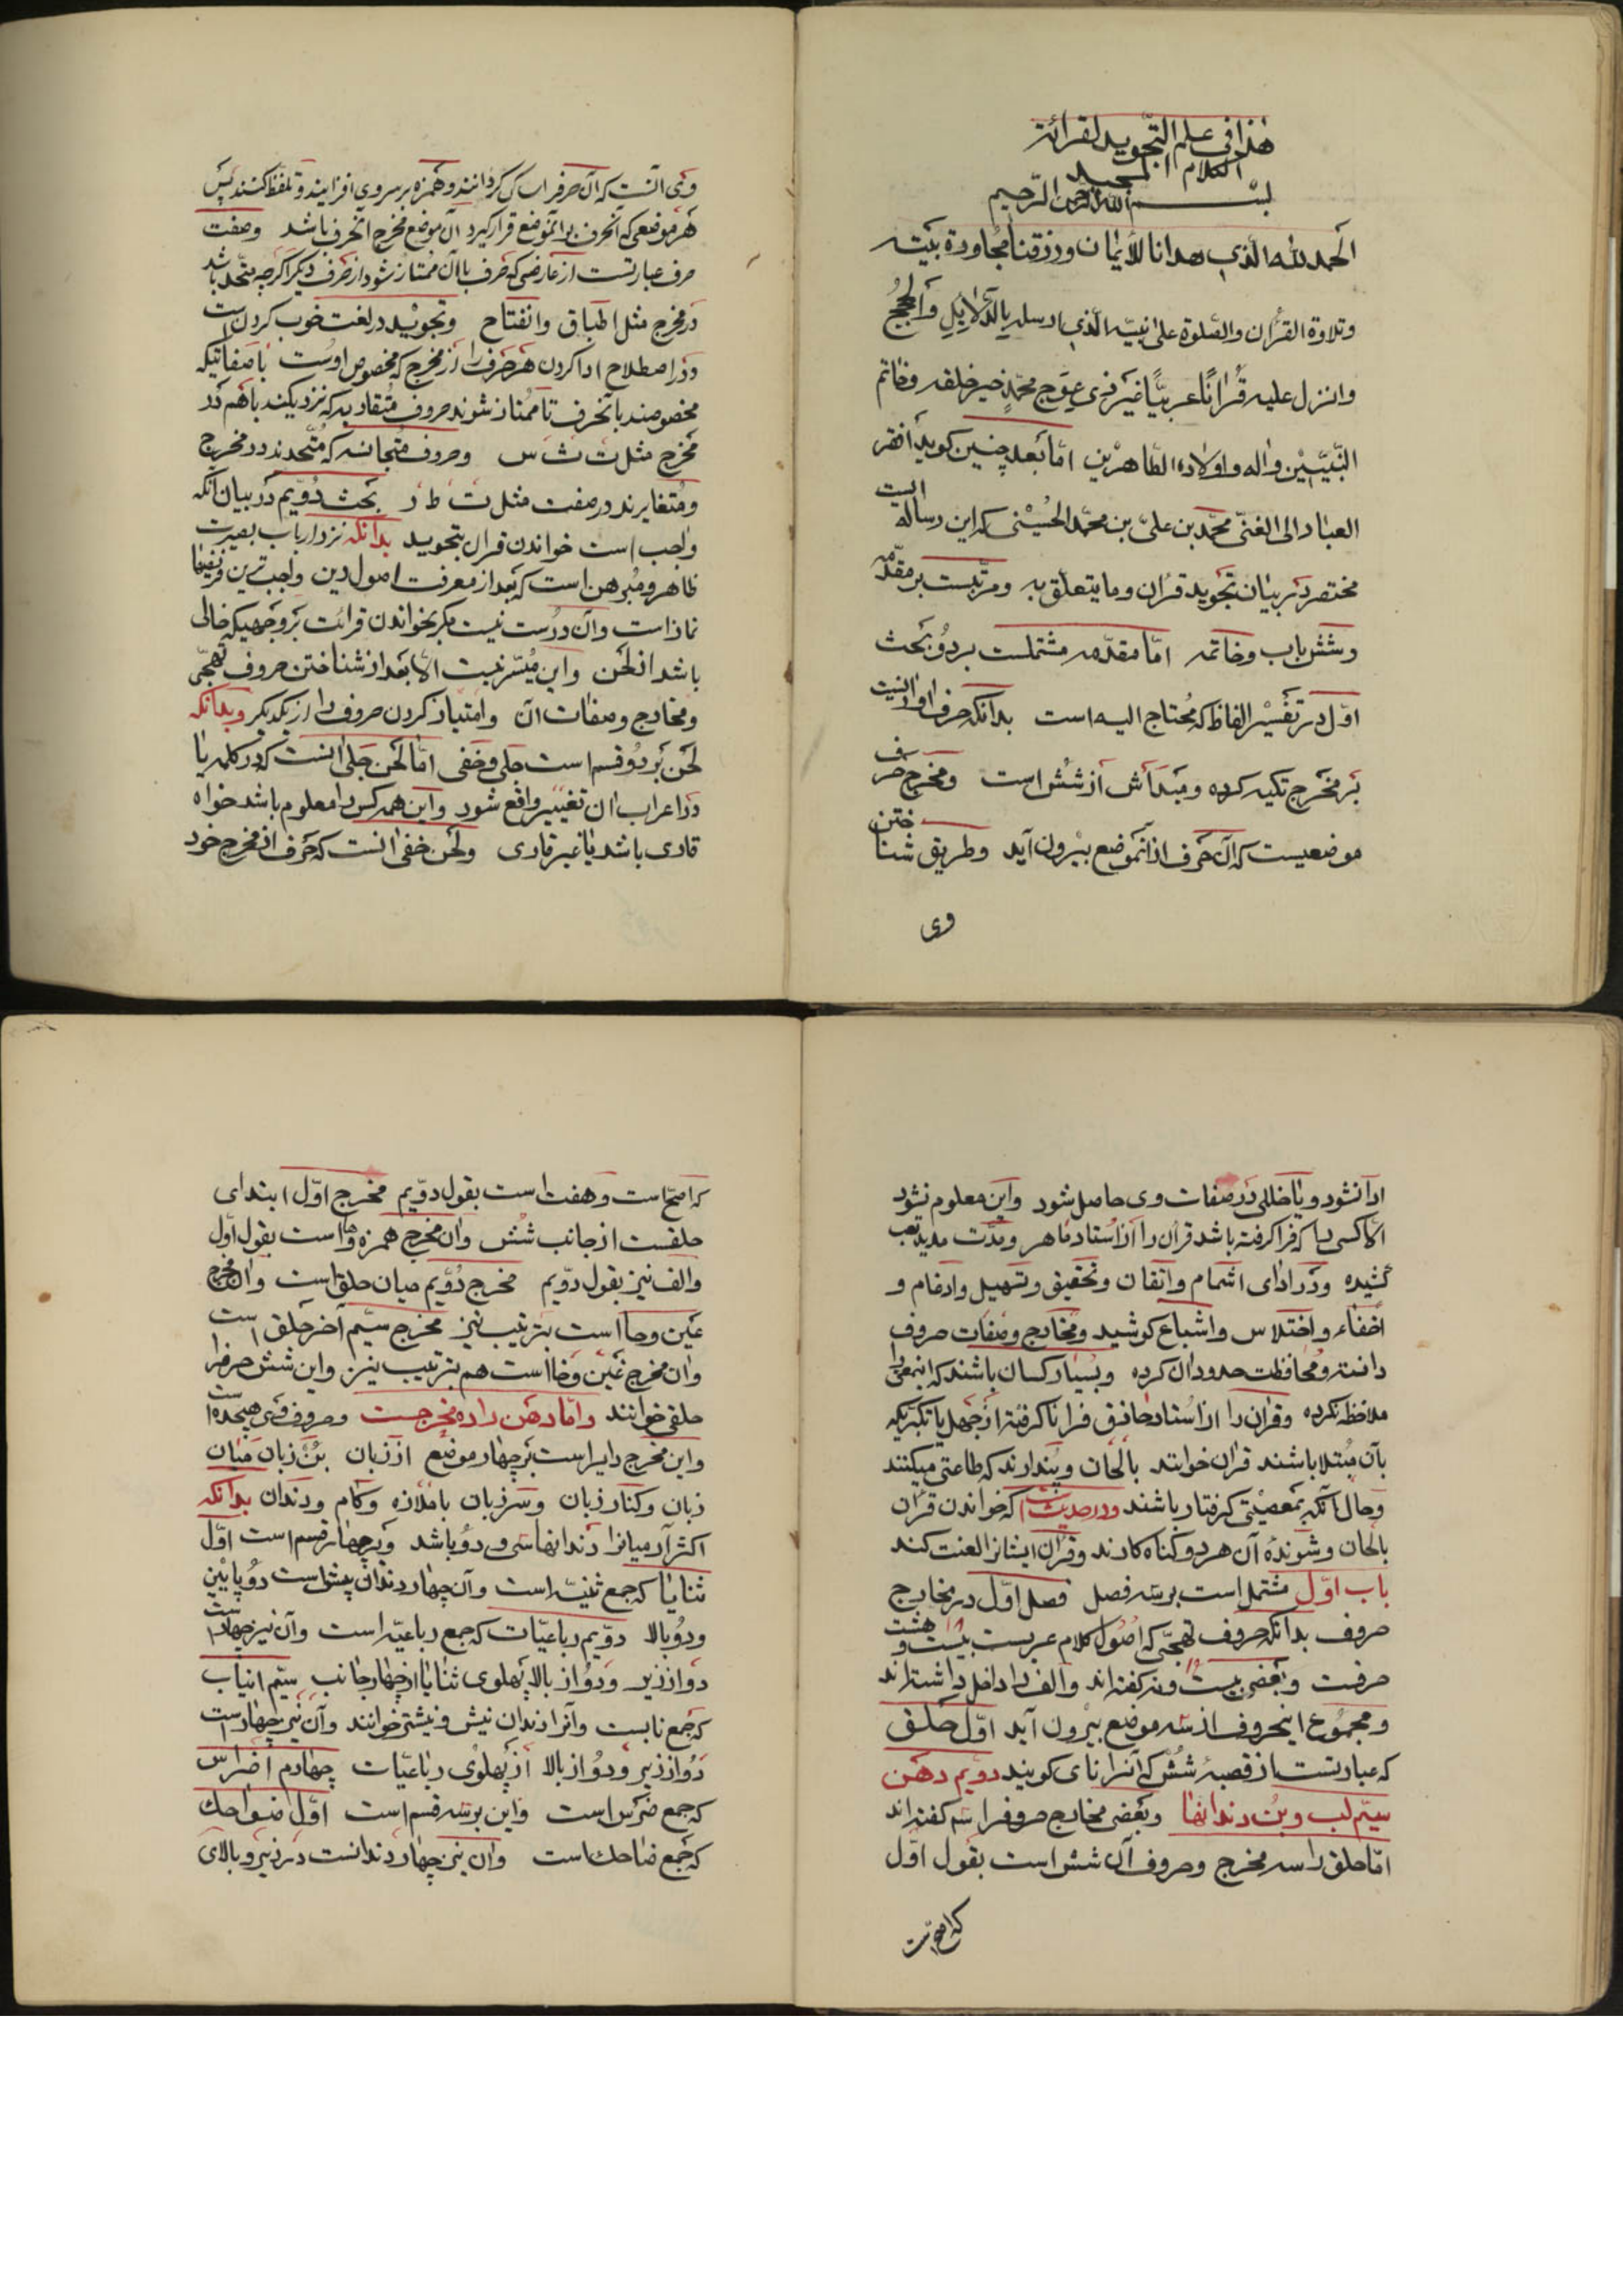 هذا فی علم التّجوید لقرائة
الکلام المجید
بسم الله الرحمن الرّحیم
الحمد لله الّذی هدانا للأیمان ورزقنا مجاورة بیته
وتلاوة القرأن والصّلوة علی نبیّه الّذی ارسله بالدّلایل والحجج
وانزل علیه قُرانًا عربیًّا غیر ذی عِوَج محمّدٍ خیر خلقه وخاتم
النّبیّین واله واولاده الطّاهرین امّا بعد چنین کوید افقر
العباد الی الغنیّ محمّد بن علیّ بن محمّد الحُسینی که این رساله ایست
مختصر در بیان تجوید قران وما یتعلّق به ومرتّبست بر مقدّمه
وشش باب وخاتمه امّا مقدّمه مشتملست بر دو بحث
اوّل در تفسیر الفاظ که مُحتاج الیه است بدانکه حرف اوازیست
بر مخرج تکیه کرده ومبدأش از شش است ومخرج حرف
موضعیست که آن حرف از آنموضع بیرون آید وطریق شناختن
وی
وی آنست که آن حرفرا ساکن کردانند وهمزه بر سر وی افزایند وتلفظ کنند پس
هر موضعی که آنحرف بر آنموضع قرار کیرد آن موضع مخرج آنحرف باشد وصفت
حرف عبارتست از عارضی که حرف با آن ممتاز شود از حرف دیکر اکرچه متّحد باشد
در مخرج مثل اطباق وانفتاح وتجوید در لغت خوب کردن است
ودر اصطلاح ادا کردن هر حرف را از مخرج که مخصوص اوست با صفاتیکه
مخصوصند بآنحرف تا ممتاز شوند حروف متقاربه که نزدیکند باهم در
مخرج مثل ت ث س وحروف متجانسه که متّحدند در مخرج
ومتغایرند در صفت مثل ت ط د بحث دُوّیم در بیان آنکه
واجب است خواندن قران بتجوید بدانکه نزد ارباب بصیرت
ظاهر ومبرهن است که بعد از معرفت اصول دین واجب ترین فریضها
نماز است وآن درست نیست مکر بخواندن قرائت بر وجهیکه خالی
باشد از لحن واین میّسر نیست الّا بعد از شناختن حروف تهجّی
ومخارج وصفات آن وامتیاز کردن حروف را از یکدیکر وبدانکه
لحن بر دو قسم است جلی وخفی امّا لحن جلی آنست که در کلمه یا
در اعراب آن تغییر واقع شود واین همه کس را معلوم باشد خواه
قاری باشد یا غیر قاری ولحن خفی آنست که حرف از مخرج خود
ادا نشود ویا خللی در صفات وی حاصل شود واین معلوم نشود
الّا کسی را که فرا کرفته باشد قران را از استاد ماهر ومدّت مدید تعب
کشیده ودر ادای اشمام واتقان وتحقیق وتسهیل وادغام و
اخفاء واختلاس واشباع کوشید ومخارج وصفات حروف
دانسته ومحافظت حدود ان کرده وبسیار کسان باشند که اینمعنی را
ملاحظه نکرده وقران را از استاد حاذق فرا ناکرفته از جهل یا تکبّر یکه
بآن مُبتلا باشند قران خوانند بالحان وپندارند که طاعتی میکنند
وحال آنکه بمعصیتی کرفتار باشند ودر حدیث است که خواندن قران
بالحان وشنوندۀ آن هر دو کناه کارند وقران ایشانرا لعنت کند
باب اوّل مشتمل است بر سه فصل فصل اوّل در مخارج
حروف بدانکه حروف تهجّی که اصول کلام عربست بیست وهشت ۲۸
حرفست وبعضی بیست ونه ۲۹ کفته اند والف را داخل داشته اند
ومجموع اینحروف از سه موضع بیرون آید اوّل حلق
که عبارتست از قصبۀ شُش که آنرا نای کویند دوّیم دهن
سیّم لب وبُن دندانها وبعضی مخارج حروفرا سه کفته اند
امّا حلق را سه مخرج وحروف آن شش است بقول اوّل
که اصحّ است
که اصحّ است وهفت است بقول دوّیم مخرج اوّل ابتدای
حلقست از جانب شُش وان مخرج همزه وها است بقول اوّل
والف نیز بقول دوّیم مخرج دُوّیم میان حلق است وان مخرج
عین وحا است بترتیب نیز مخرج سیّم آخر حلق است
وان مخرج غین وخا است هم بترتیب نیز واین شش حرفرا
حلقی خوانند وامّا دهن را ده مخرجست وحروف وی هیجده است
واین مخرج دایر است بر چهار موضع از زبان بُن زبان میان
زبان وکنار زبان وسر زبان با ملازه وکام ودندان بدانکه
اکثر آدمیانرا دندانها سی ودو باشد وبر چهار قسم است اوّل
ثنایا که جمع ثنیّه است وآن چهار دندان پیش است دُو پایین
ودُو بالا دوّیم رباعیّات که جمع رباعیّه است وآن نیز چهار است
دو از زیر ودُو از بالا پهلوی ثنایا از چهار جانب سیّم انیاب
که جمع نابست وآنرا دندان نیش ونیشتر خوانند وآن نیز چهار است
دُو از زیر ودُو از بالا از پهلوی رباعیّات چهارم اضراس
که جمع ضرس است واین بر سه قسم است اوّل ضواحک
که جمع ضاحک است وان نیز چهار دندانست در زیر وبالای